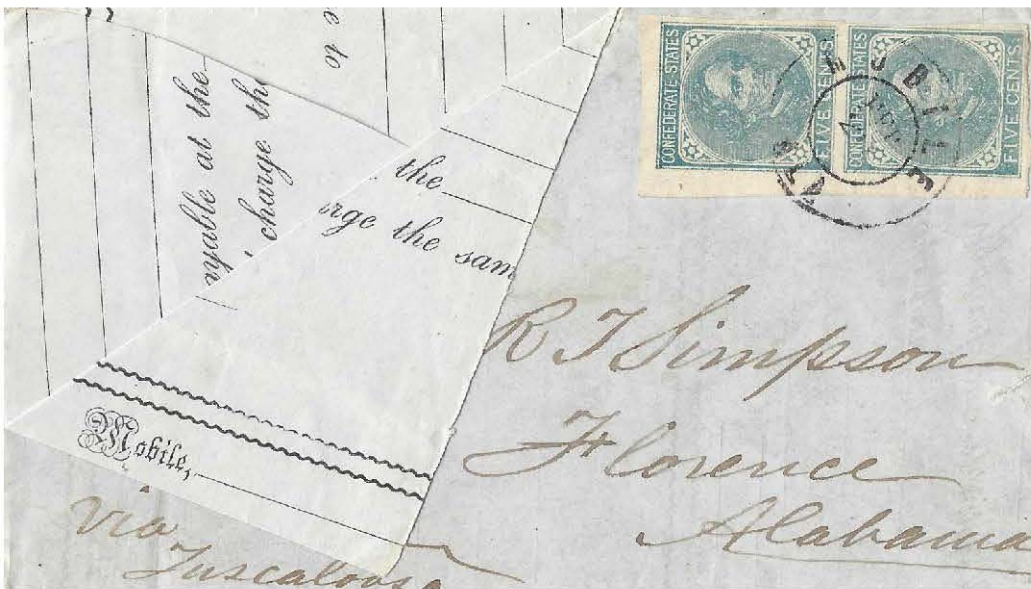 e to
ayable at the
charge the
the
rge the sam
Mobile,
CONFEDERATE STATES
FIVE CENTS
CONFEDERATE STATES
FIVE CENTS
MOBILE
ALA
R T Simpson
Florence
Alabama
Via
Tuscaloosa